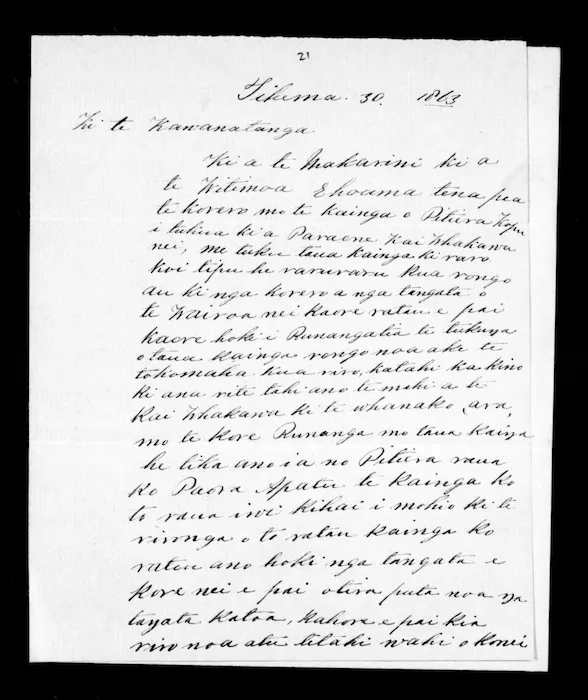 21
Tihema. 30. 1863
Ki te Kawanatanga
Ki a te Makarini ki a
te Witimoa Ehoama tena pea
te korero mo te kainga o Pitiera Kopu
i tukua ki a Paraone Kai Whakawa
nei, me tuku taua kainga ki raro
koi tipu he raruraru kua rongo
au ki nga korero a nga tangata o
te Wairoa nei kaore ratou e pai
kaore hoki i Runangatia te tukunga
o taua kainga rongo noa ake te
tokomaha kua riro, katahi ka kino
ki ana rite tahi ano te mahi a te
Kai Whakawa ki te whanako, ara,
mo te kore Runanga mo taua kainga
he tika ano ia no Pitiera raua
ko Paora Apatu te kainga ko
to raua iwi kihai i mohio ki te
rironga o to ratau kainga ko
ratou ano hoki nga tangata e
kore nei e pai otira puta noa nga
tangata katoa, kahore e pai kia
riro noa atu tetahi wahi o konei